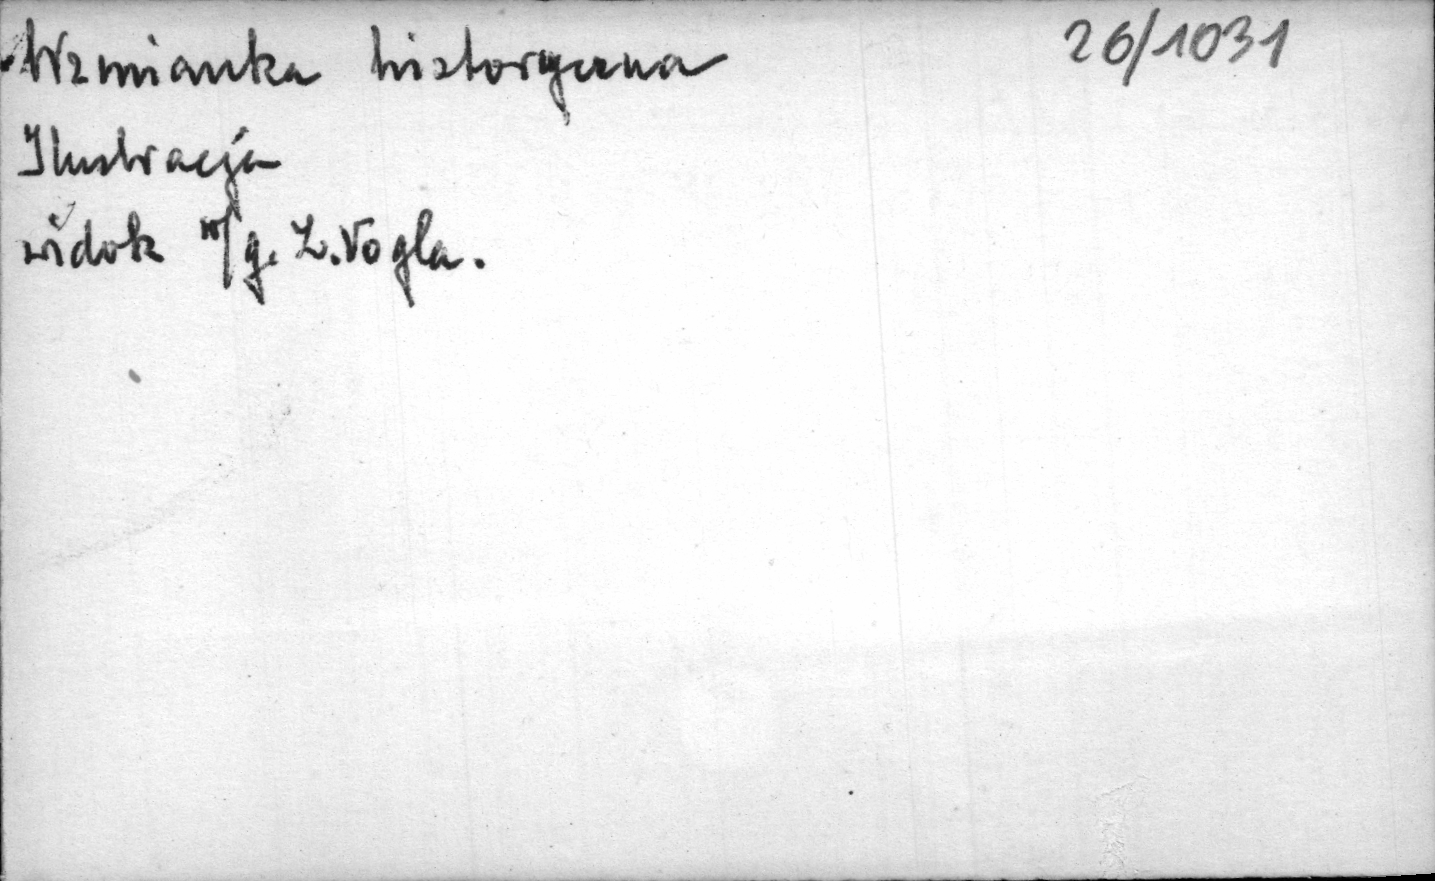 Wzmianka historyczna 26/1031
Ilustracja
widok w/g. Z. Vogla.